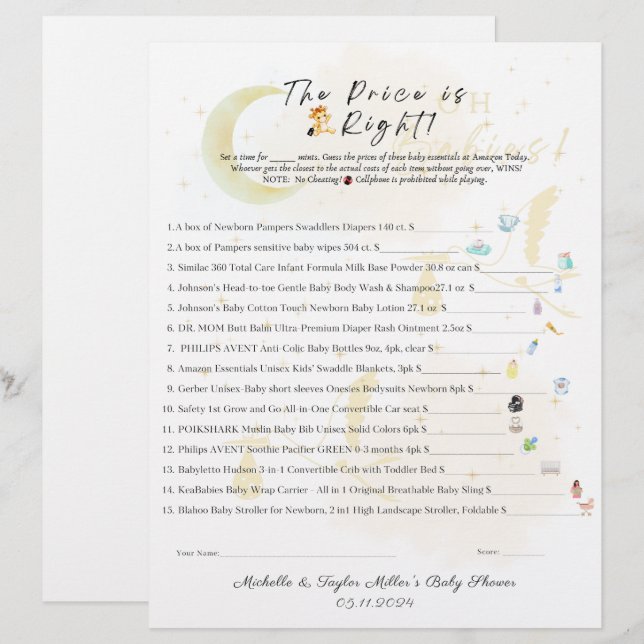 The Price is
Right!
OH
Babies!
Set a time for_____ mints. Guess the prices of these baby essentials at Amazon Today.
Whoever gets the closest to the actual costs of each item without going over, WINS!
NOTE: No Cheating! Cellphone is prohibited while playing.
1. A box of Newborn Pampers Swaddlers Diapers 140 ct. $____________
2.A box of Pampers sensitive baby wipes 504 ct. $____________
3. Similac 360 Total Care Infant Formula Milk Base Powder 30.8 oz can $____________
4. Johnson's Head-to-toe Gentle Baby Body Wash & Shampoo27.1 oz $____________
5. Johnson's Baby Cotton Touch Newborn Baby Lotion 27.1 oz $____________
6. DR. MOM Butt Balm Ultra-Premium Diaper Rash Ointment 2.5oz $____________
7. PHILIPS AVENT Anti-Colic Baby Bottles 9oz, 4pk, clear $____________
8. Amazon Essentials Unisex Kids' Swaddle Blankets, 3pk $____________
9. Gerber Unisex-Baby short sleeves Onesies Bodysuits Newborn 8pk $____________
10. Safety 1st Grow and Go All-in-One Convertible Car seat $____________
11. POIKSHARK Muslin Baby Bib Unisex Solid Colors 6pk $____________
12. Philips AVENT Soothie Pacifier GREEN 0-3 months 4pk $____________
13. Babyletto Hudson 3-in-1 Convertible Crib with Toddler Bed $____________
14. KeaBabies Baby Wrap Carrier - All in 1 Original Breathable Baby Sling $____________
15. Blahoo Baby Stroller for Newborn, 2 in1 High Landscape Stroller, Foldable $____________
Your Name:____________ Score: ________
Michelle & Taylor Miller's Baby Shower
05.11.2024